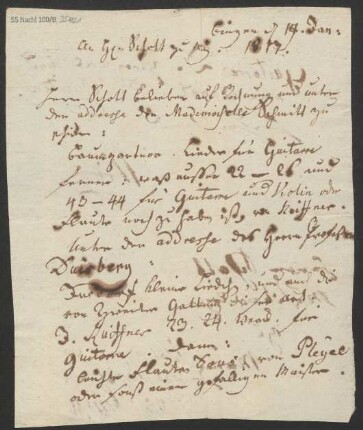 55 Nachl 100/B
Bingen d 14. Jan:
An Hrn Schott zu 1817.
Herrn Schott belieben auf Rechnung und unter
der addresse der Mademoiselle Schmitt zu
Baumgartner. Lieder für Guitarre
ferner was ausser 22 – 26 und
43 – 44 für Guitarre und Violin oder
Flaute noch zu haben ist, von Küffner.
Unter der addresse des Herrn Professor
Duisberg:
kleine Lieder, und auch die
von Gattung
J. Küffner 23. 24. für
Guitarre
dann:
leichte Flauten von Pleyel
oder sonst einem gefälligen Meister.